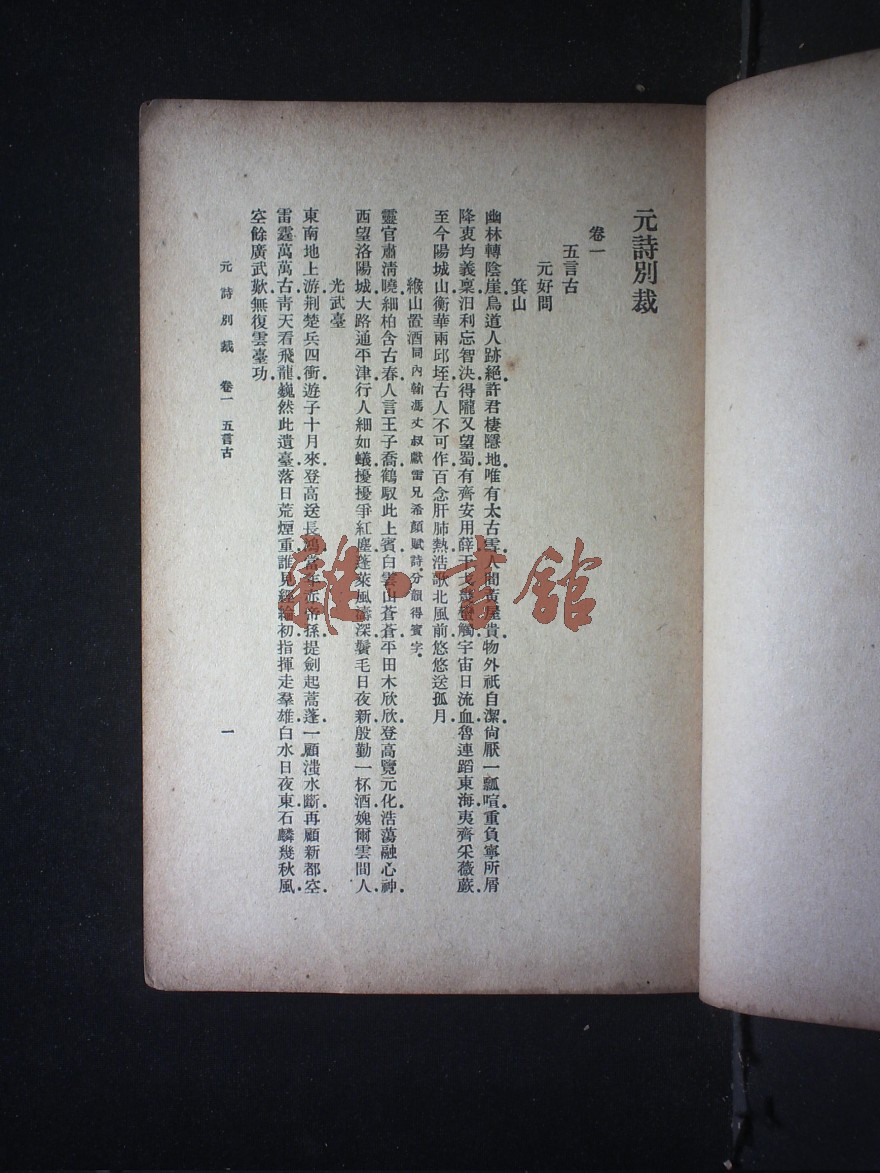 元詩別裁
卷一
五言古
元好問
箕山
幽林轉陰崖鳥道人跡絕許君棲隱地唯有太古雪人間黃屋貴物外祇自潔尙厭一瓢喧重負寧所屑
降衷均義稟汨利忘智決得隴又望蜀有齊安用薛干戈幾蠻觸宇宙日流血魯連蹈東海夷齊采薇蕨
至今陽城山衡華兩邱垤古人不可作百念肝肺熱浩歌北風前悠悠送孤月
緱山置酒同內翰馮丈叔獻雷兄希顏賦詩分韻得賓字
靈官肅淸曉細柏含古春人言王子喬鶴馭此上賓白雲山蒼蒼平田木欣欣登高覽元化浩蕩融心神
西望洛陽城大路通平津行人細如蟻擾擾爭紅塵蓬萊風濤深鬢毛日夜新殷勤一杯酒媿爾雲間人
光武臺
東南地上游荆楚兵四衝遊子十月來登高送長鴻當年赤帝孫提劍起蒿蓬一顧滍水斷再顧新都空
雷霆萬萬古靑天看飛龍巍然此遺臺落日荒煙重誰見經綸初指揮走羣雄白水日夜東石麟幾秋風
空餘廣武歎無復雲臺功
元詩別裁 卷一 五言古 一
雜·書館